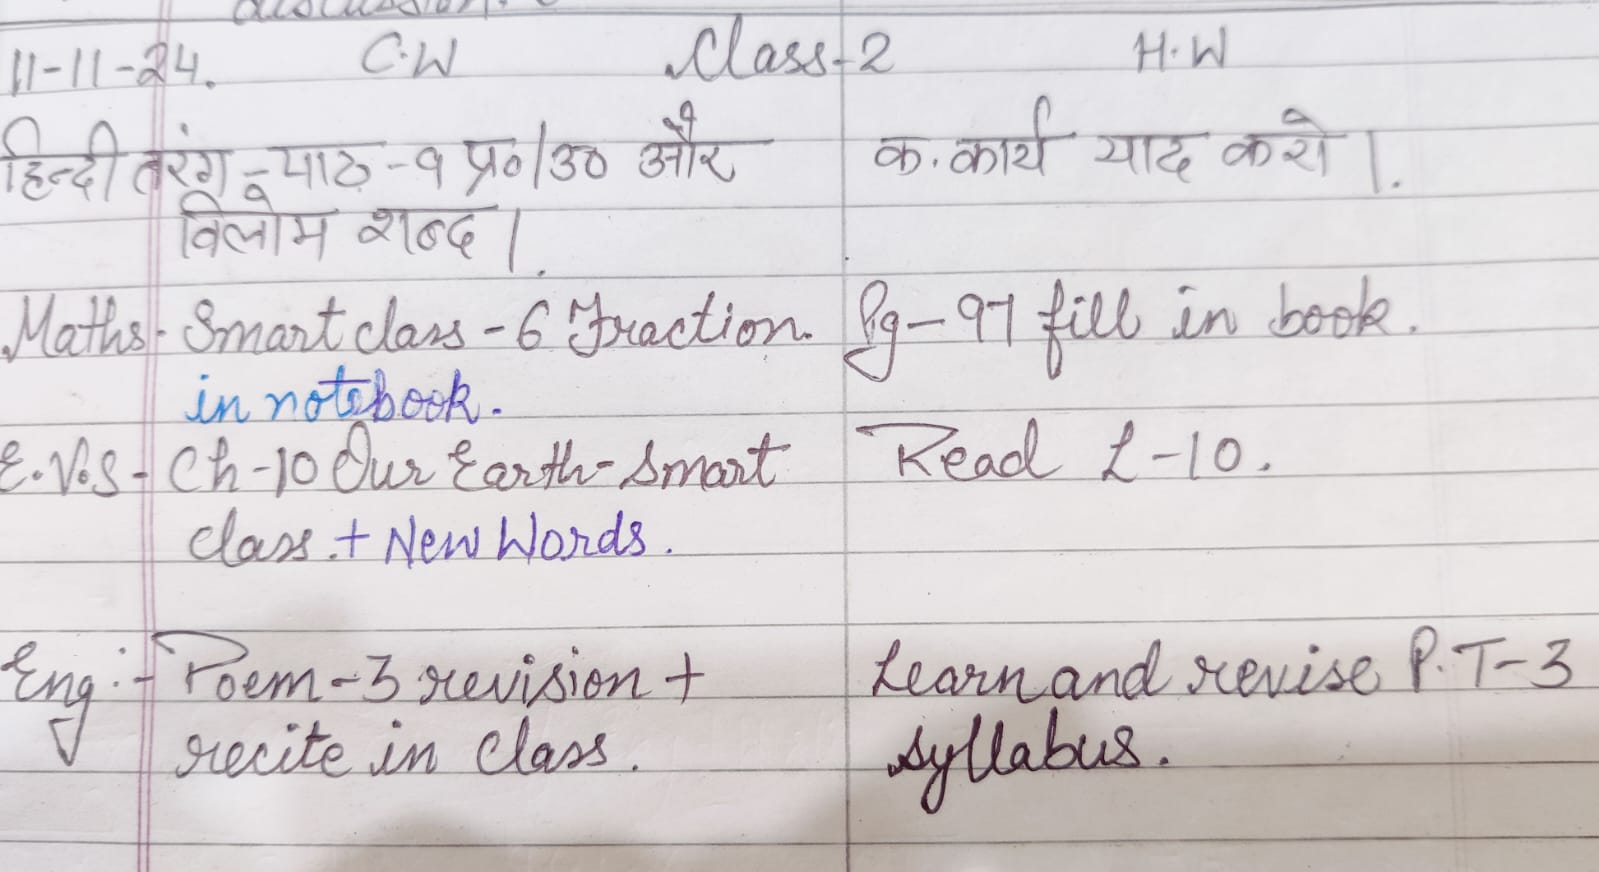 discussion.
11-11-24. C.W Class-2 H.W
हिन्दी तरंग - पाठ -9 प्र०/उ० और क. कार्य याद करो।.
विलोम शब्द।.
Maths- Smart class - 6 Fraction. Pg-97 fill in book.
in notebook.
E.V.S - Ch-10 Our Earth- Smart Read L-10.
class. + New Words.
Eng:- Poem-3 revision + Learn and revise P.T-3
recite in class. syllabus.